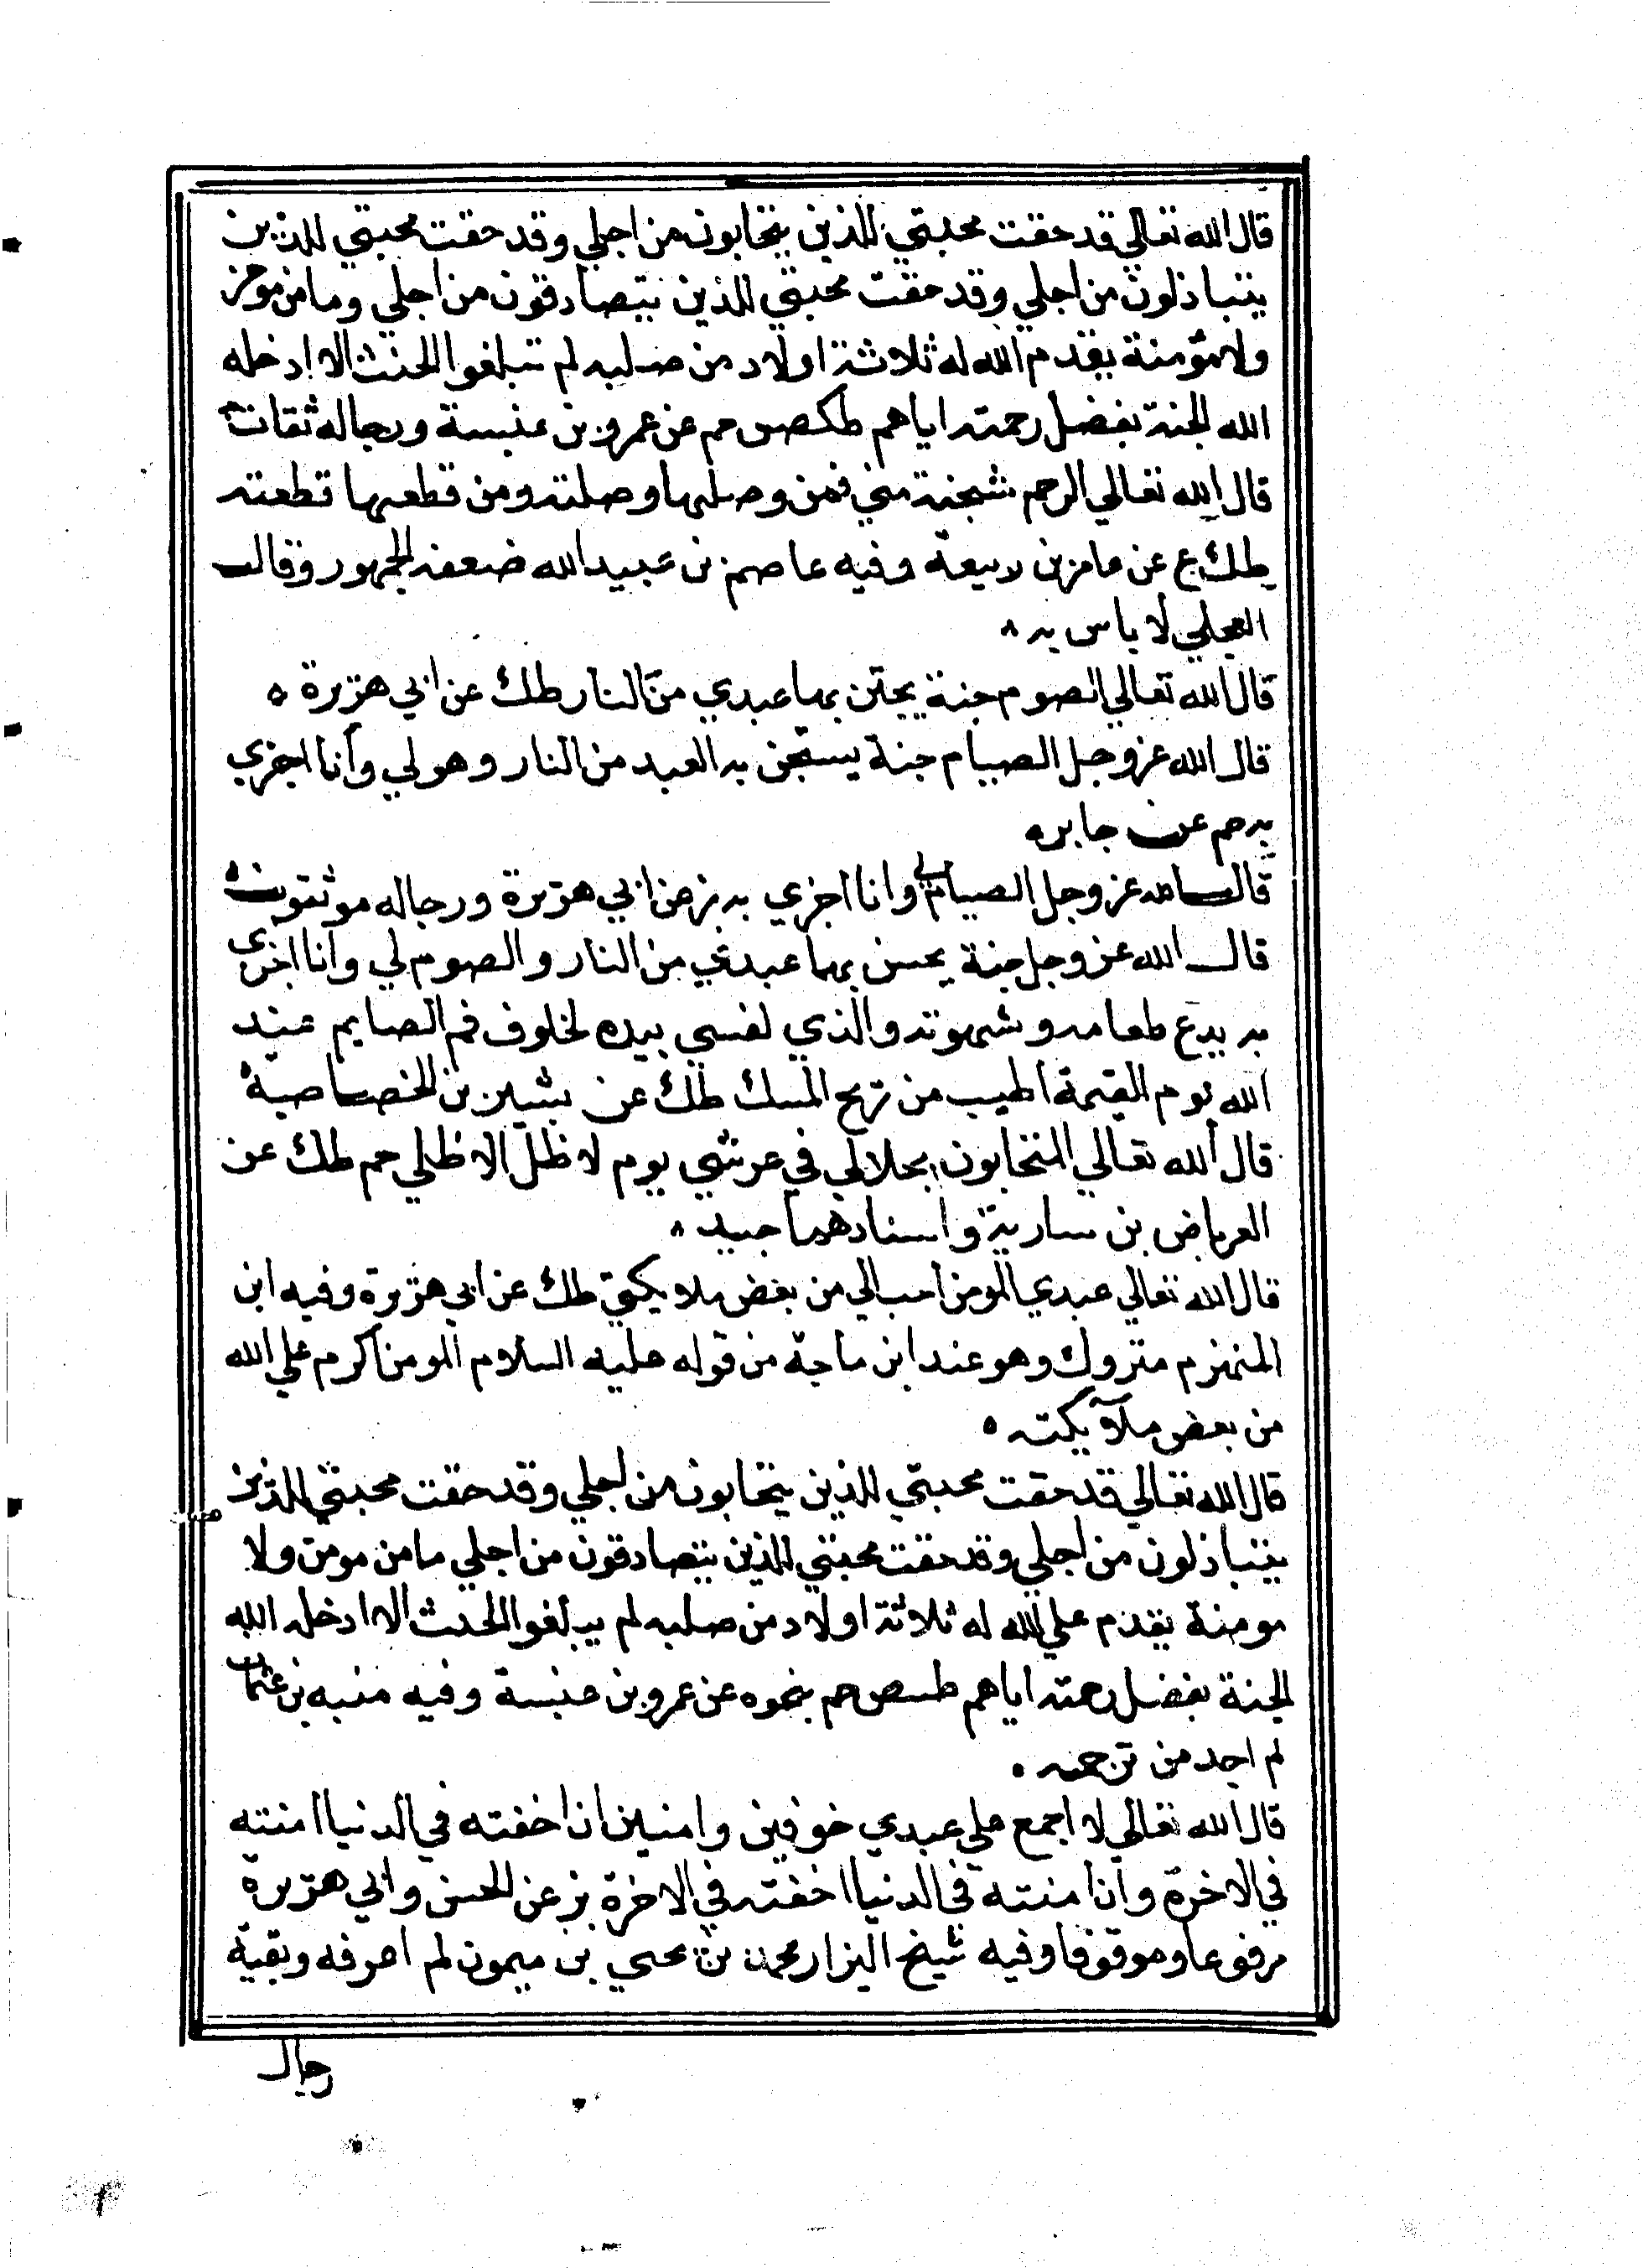 قال الله تعالي قد حقت محبتي للذين يتحابون من اجلي وقد حقت محبتي للذين
يتباذلون من اجلي وقد حقت محبتي للذين يتصادقون من اجلي وما من مومن
ولا مؤمنة يقدم الله له ثلاثة اولاد من صلبه لم تبلغوا الحنث الا ادخله
الله الجنة بفضل رحمته اياهم طكص حم عن عمرو بن عنبسة ورجاله ثقات
قال الله تعالي الرحم شجنة مني فمن وصلها وصلته ومن قطعها قطعته
طك ع عن عامر بن ربيعة وفيه عاصم بن عبيد الله ضعفه الجمهور وقال
العجلي لا باس به
قال الله تعالي الصوم جنة يجتن بها عبدي من النار طك عن ابي هريرة ه
قال الله عز وجل الصيام جنة يستجن به العبد من النار وهو لي وأنا اجزي
به حم عن جابر ه
قال الله عز وجل الصيام لي وانا اجزي به بز عن ابي هريرة ورجاله موثقون
قال الله عز وجل جنة يحسن بها عبدي من النار والصوم لي وأنا اجزى
به يدع طعامه وشهوته والذي نفسي بيده لخلوف فم الصايم عند
الله يوم القيمة اطيب من ريح المسك طك عن بشير بن الخصاصية
قال الله تعالي المتحابون بجلالي في عرشي يوم لا ظل الا ظلي حم طك عن
العرباض بن سارية واسنادهما جيد
قال الله تعالي عبدي المومن احب الي من بعض ملايكتي طك عن ابي هريرة وفيه ابن
المنهزم متروك وهو عند ابن ماجة من قوله عليه السلام المومن اكرم علي الله
من بعض ملآيكته ه
قال الله تعالي قد حقت محبتي للذين يتحابون من اجلي وقد حقت محبتي للذين
يتباذلون من اجلي وقد حقت محبتي للذين يتصادقون من اجلي ما من مومن ولا
مومنة يقدم علي الله له ثلاثة اولاد من صلبه لم يبلغوا الحنث الا ادخله الله
الجنة بفضل رحمته اياهم طسص حم بنحوه عن عمرو بن عنبسة وفيه منبه بن عثمان
لم اجد من ترجمه
قال الله تعالي لا اجمع علي عبدي خوفين وامنين ان اخفته في الدنيا امنته
في الاخرة وان امنته في الدنيا اخفته في الاخرة بز عن الحسن وابي هريرة
مرفوعا وموقوفا وفيه شيخ البزار محمد بن يحيي بن ميمون لم اعرفه وبقية
رجال